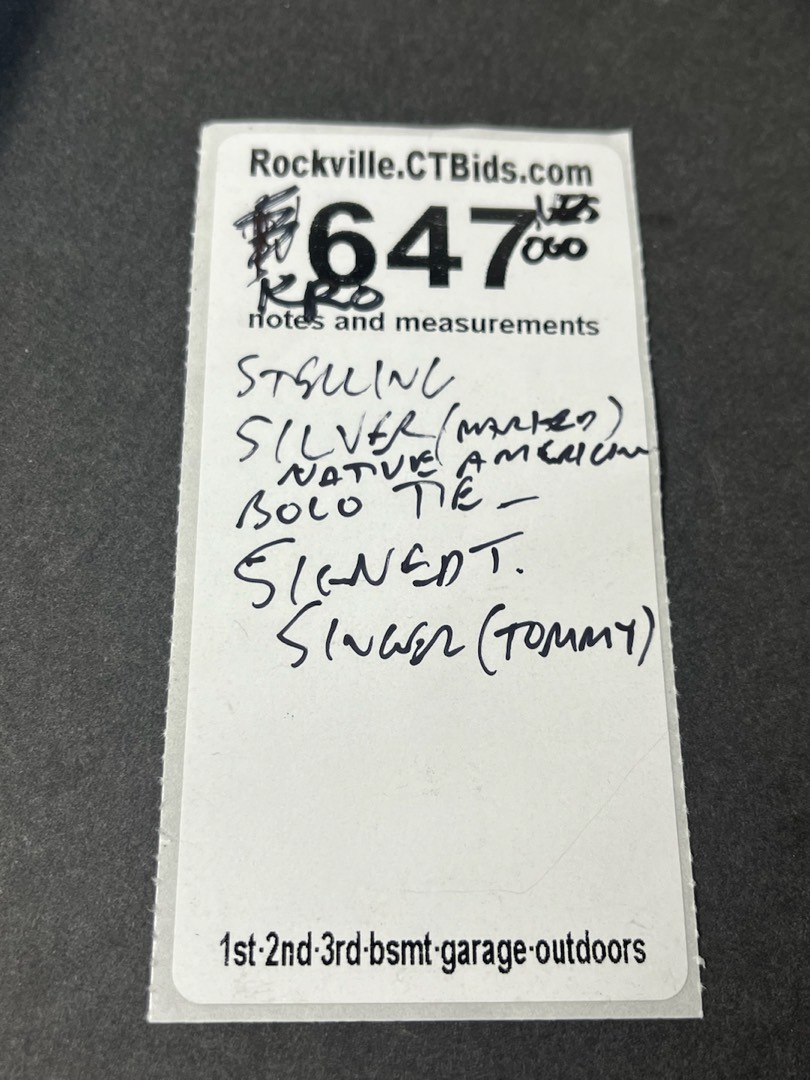 Rockville.CTBids.com
647
OGO
KRO
notes and measurements
STERLING
SILVER (MARKED)
NATIVE AMERICAN
BOLO TIE –
SIGNED T.
SINGER (TOMMY)
1st·2nd·3rd·bsmt·garage·outdoors